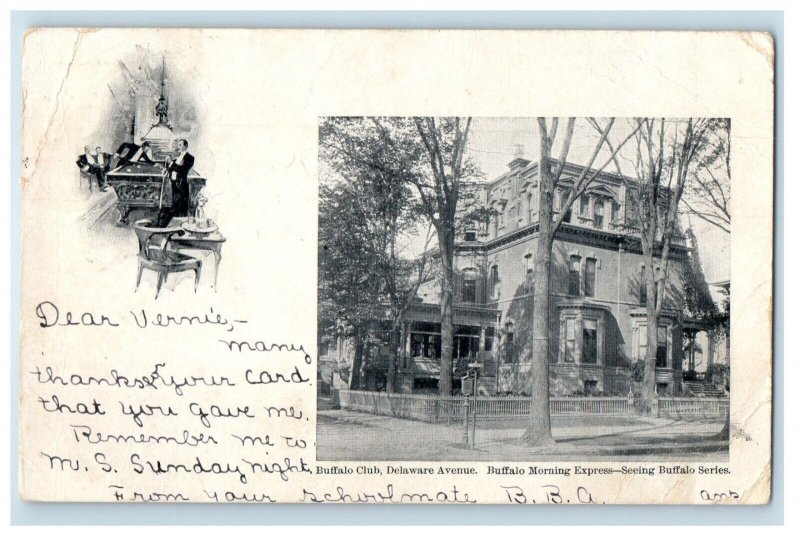 Dear Vernie,-
many
thanks for your card.
that you gave me.
Remember me to
M. S. Sunday night.
Buffalo Club, Delaware Avenue. Buffalo Morning Express—Seeing Buffalo Series.
From your schoolmate B. B. A. ans